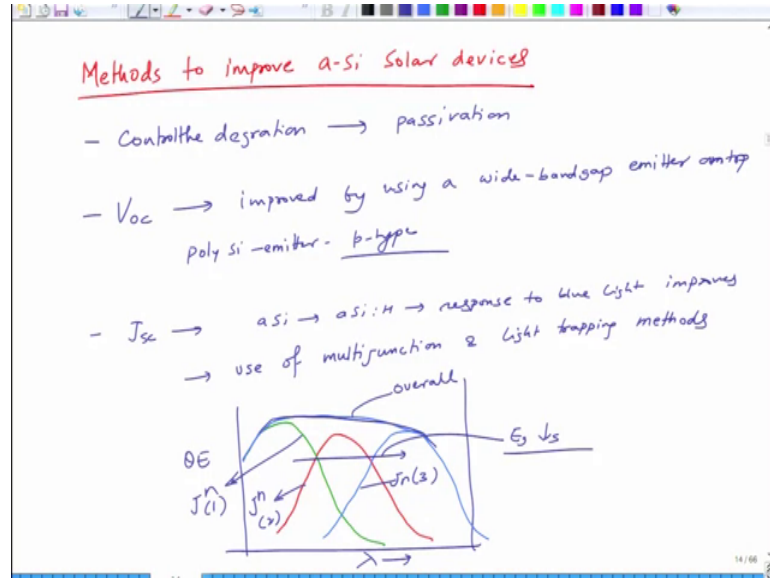 Methods to improve a-Si Solar devices
- Controlthe degration → passivation
- Voc → improved by using a wide-bandgap emitter ontop
poly si-emitter- p-type
- Jsc → asi → asi:H → response to blue light improves
→ use of multijunction & light trapping methods
overall
QE
Eg ↓s
Jn(1)
Jn(2)
Jn(3)
λ →
14/66